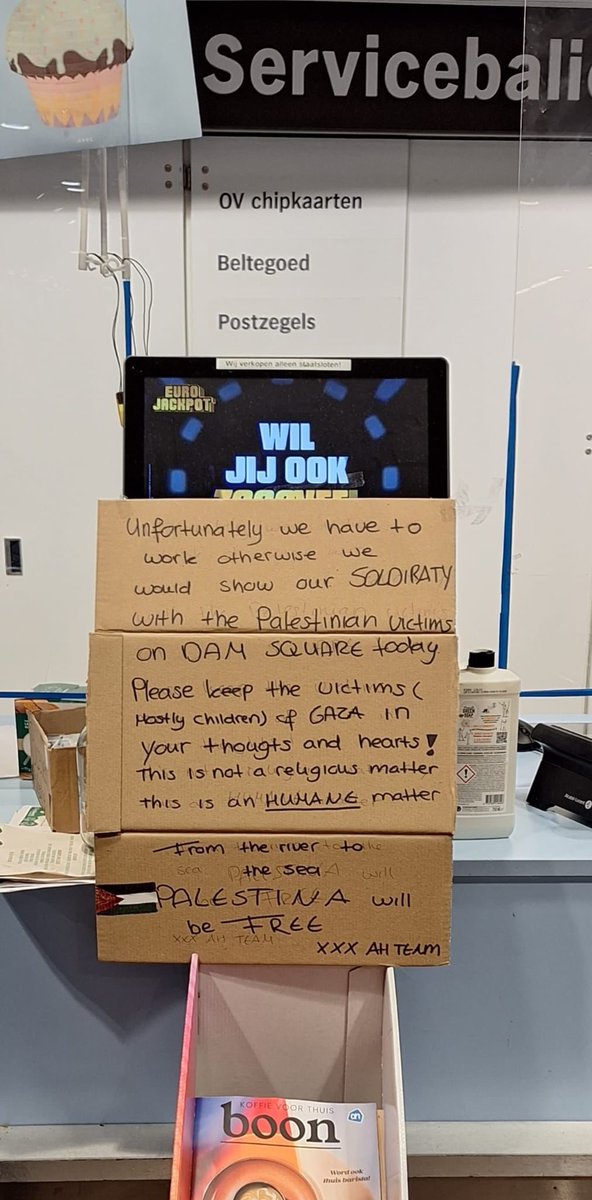 Servicebalie
OV chipkaarten
Beltegoed
Postzegels
Wij verkopen alleen staatsloten!
EURO
JACKPOT
WIL
JIJ OOK
Unfortunately we have to
work otherwise we
would show our SOLDIRATY
with the Palestinian victims
on DAM SQUARE today
Please keep the victims (
Mostly children) of GAZA in
your thougts and hearts!
This is not a religious matter
this is an HUMANE matter
From the river to
the sea
PALESTINA will
be FREE
XXX AH TEAM
XXX AH TEAM
KOFFIE VOOR THUIS
boon
Word ook
thuis barista!